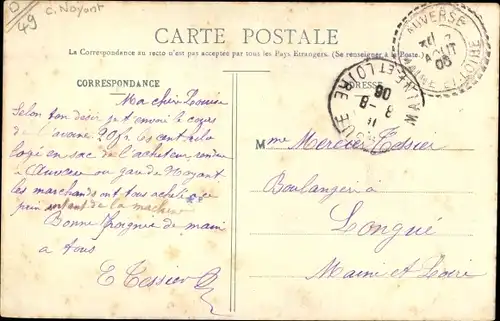 49
C. Noyant
CARTE POSTALE
La Correspondance au recto n'est pas acceptée par tous les Pays Etrangers. (Se renseigner à la Poste)
CORRESPONDANCE
ADRESSE
Ma chère Louise
Selon ton désir je t envoi le cours
de l avoine 20f les cent kilo
logé en sac de l acheteur rendu
à Auverse ou gare de Noyant
les marchands ont tous acheté à ce
prix
Bonne Poignée de main
a tous
E Tessier
AUVERSE
AOUT
MAINE-ET-LOIRE
8-8
08
ET LOIRE
Mme Mercier Tessier
Boulanger à
Longué
Maine et Loire